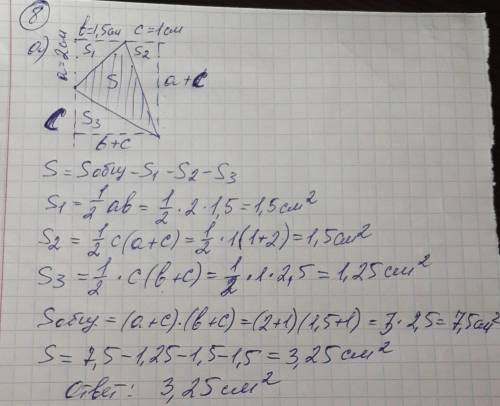 8
b=1,5см c=1см
а) a=2см S₁ S₂
S a+c
c S₃
b+c
S = Sобщ - S₁ - S₂ - S₃
S₁ = 1/2 ab = 1/2 · 2 · 1,5 = 1,5 см²
S₂ = 1/2 c(a+c) = 1/2 · 1(1+2) = 1,5 см²
S₃ = 1/2 · c(b+c) = 1/2 · 1 · 2,5 = 1,25 см²
Sобщ = (a+c)·(b+c) = (2+1)(1,5+1) = 3 · 2,5 = 7,5 см²
S = 7,5 - 1,25 - 1,5 - 1,5 = 3,25 см²
Ответ: 3,25 см²